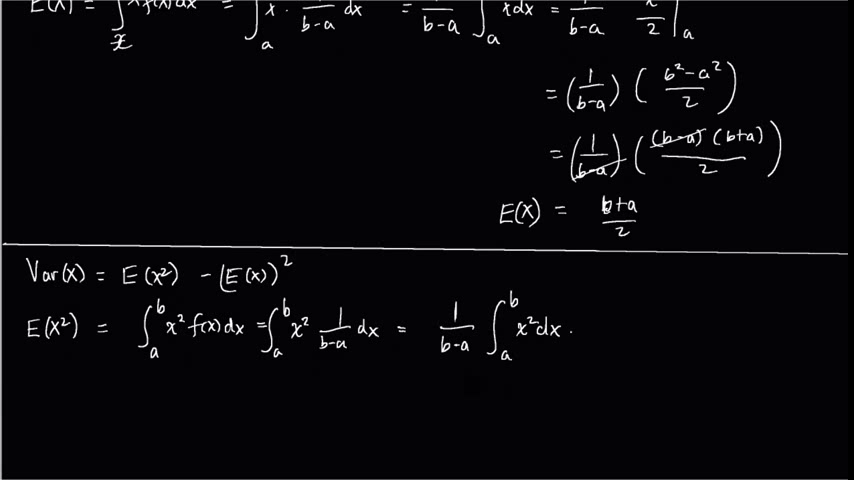 E(X) = ∫ x f(x) dx = ∫_a x · 1/(b-a) dx = 1/(b-a) ∫_a x dx = 1/(b-a) x/2 |_a
= (1/(b-a)) ((b²-a²)/2)
= (1/(b-a)) ((b-a)(b+a)/2)
E(X) = (b+a)/2
Var(X) = E(X²) - (E(X))²
E(X²) = ∫_a^b x² f(x) dx = ∫_a^b x² 1/(b-a) dx = 1/(b-a) ∫_a^b x² dx .